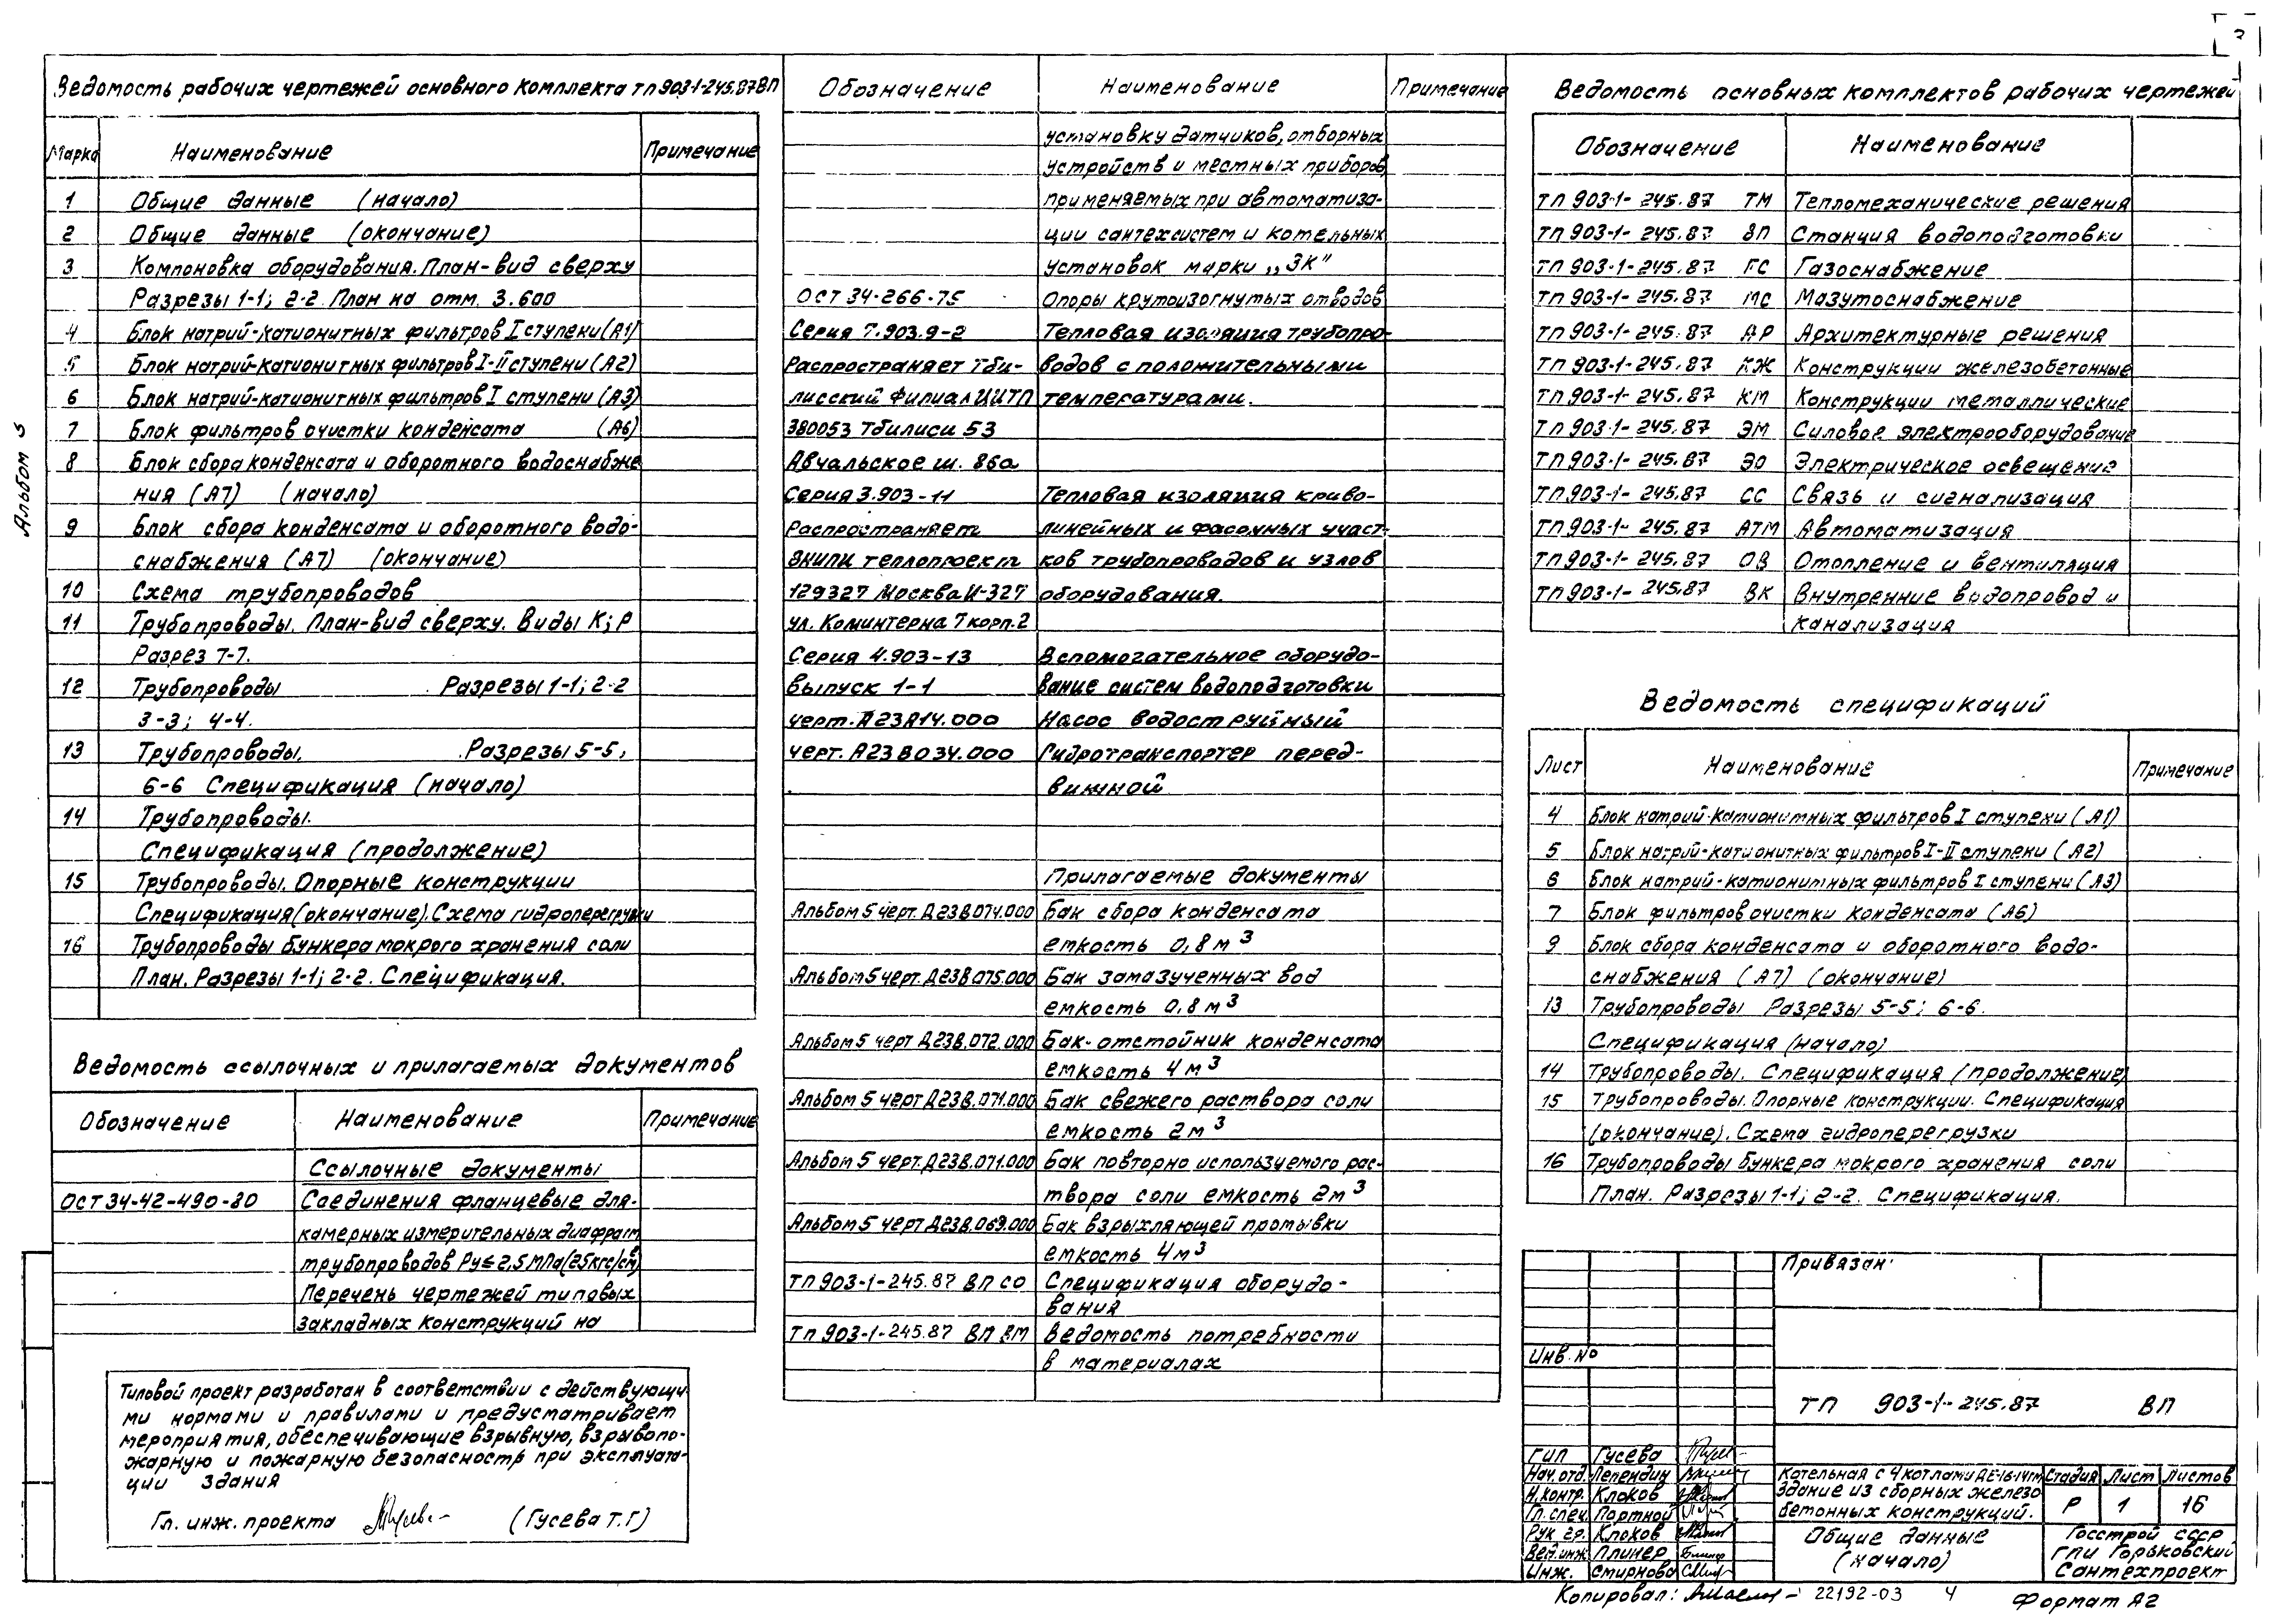 Альбом 5
Ведомость рабочих чертежей основного комплекта тп 903-1-245.87 ВП
Марка Наименование Примечание
1 Общие данные (начало)
2 Общие данные (окончание)
3 Компоновка оборудования. План-вид сверху
Разрезы 1-1; 2-2. План на отм. 3.600
4 Блок натрий-катионитных фильтров I ступени (А1)
5 Блок натрий-катионитных фильтров I-II ступени (А2)
6 Блок натрий-катионитных фильтров I ступени (А3)
7 Блок фильтров очистки конденсата (А6)
8 Блок сбора конденсата и оборотного водоснабже
ния (А7) (начало)
9 Блок сбора конденсата и оборотного водо-
снабжения (А7) (окончание)
10 Схема трубопроводов
11 Трубопроводы. План-вид сверху. Виды К; Р
Разрез 7-7.
12 Трубопроводы Разрезы 1-1; 2-2
3-3; 4-4.
13 Трубопроводы. Разрезы 5-5,
6-6 Спецификация (начало)
14 Трубопроводы.
Спецификация (продолжение)
15 Трубопроводы. Опорные конструкции
Спецификация (окончание). Схема гидроперегрузки
16 Трубопроводы бункера мокрого хранения соли
План. Разрезы 1-1; 2-2. Спецификация.
Ведомость ссылочных и прилагаемых документов
Обозначение Наименование Примечание
Ссылочные документы
ОСТ 34-42-490-80 Соединения фланцевые для
камерных измерительных диафрагм
трубопроводов Ру ≤ 2,5 МПа (25 кгс/см²)
Перечень чертежей типовых
закладных конструкций на
Типовой проект разработан в соответствии с действующи-
ми нормами и правилами и предусматривает
мероприятия, обеспечивающие взрывную, взрывопо-
жарную и пожарную безопасность при эксплуата-
ции здания
Гл. инж. проекта (Гусева Т.Г)
Обозначение Наименование Примечание
установку датчиков, отборных
устройств и местных приборов,
применяемых при автоматиза-
ции сантехсистем и котельных
установок марки „ЗК"
ОСТ 34-266-75 Опоры крутоизогнутых отводов
Серия 7.903.9-2 Тепловая изоляция трубопро-
Распространяет Тби- водов с положительными
лисский филиал ЦИТП температурами.
380053 Тбилиси 53
Авчальское ш. 86а
Серия 3.903-11 Тепловая изоляция криво-
Распространяет линейных и фасочных участ-
ВНИПИ теплопроект ков трубопроводов и узлов
129327 Москва И-327 оборудования.
ул. Коминтерна 7 корп.2
Серия 4.903-13 Вспомогательное оборудо-
выпуск 1-1 вание систем водоподготовки
черт. А23А14.000 Насос водоструйный
черт. А23В034.000 Гидротранспортер перед-
вижной
Прилагаемые документы
Альбом 5 черт. Д23В.074.000 Бак сбора конденсата
емкость 0,8 м³
Альбом 5 черт. Д23В.075.000 Бак замазученных вод
емкость 0,8 м³
Альбом 5 черт Д23В.072.000 Бак-отстойник конденсата
емкость 4 м³
Альбом 5 черт Д23В.071.000 Бак свежего раствора соли
емкость 2 м³
Альбом 5 черт. Д23В.071.000 Бак повторно используемого рас-
твора соли емкость 2 м³
Альбом 5 черт Д23В.069.000 Бак взрыхляющей промывки
емкость 4 м³
ТП 903-1-245.87 ВП СО Спецификация оборудо-
вания
ТП 903-1-245.87 ВП ВМ Ведомость потребности
в материалах
Ведомость основных комплектов рабочих чертежей
Обозначение Наименование
ТП 903-1-245.87 ТМ Тепломеханические решения
ТП 903-1-245.87 ВП Станция водоподготовки
ТП 903-1-245.87 ГС Газоснабжение
ТП 903-1-245.87 МС Мазутоснабжение
ТП 903-1-245.87 АР Архитектурные решения
ТП 903-1-245.87 КЖ Конструкции железобетонные
ТП 903-1-245.87 КМ Конструкции металлические
ТП 903-1-245.87 ЭМ Силовое электрооборудование
ТП 903-1-245.87 ЭО Электрическое освещение
ТП 903-1-245.87 СС Связь и сигнализация
ТП 903-1-245.87 АТМ Автоматизация
ТП 903-1-245.87 ОВ Отопление и вентиляция
ТП 903-1-245.87 ВК Внутренние водопровод и
канализация
Ведомость спецификаций
Лист Наименование Примечание
4 Блок натрий-катионитных фильтров I ступени (А1)
5 Блок натрий-катионитных фильтров I-II ступени (А2)
6 Блок натрий-катионитных фильтров I ступени (А3)
7 Блок фильтров очистки конденсата (А6)
9 Блок сбора конденсата и оборотного водо-
снабжения (А7) (окончание)
13 Трубопроводы Разрезы 5-5; 6-6.
Спецификация (начало)
14 Трубопроводы. Спецификация (продолжение)
15 Трубопроводы. Опорные конструкции. Спецификация
(окончание). Схема гидроперегрузки
16 Трубопроводы бункера мокрого хранения соли
План. Разрезы 1-1; 2-2. Спецификация.
Привязан:
Инв. №
ТП 903-1-245.87 ВП
ГИП Гусева
Нач. отд. Лепендин
Н.контр. Клоков
Гл. спец. Портной
Рук. гр. Клоков
Вед. инж. Плинер
Инж. Смирнова
Котельная с 4 котлами ДЕ-16-14ГМ
Здание из сборных железо
бетонных конструкций.
Стадия Лист Листов
Р 1 16
Общие данные
(начало)
Госстрой СССР
ГПИ Горьковский
Сантехпроект
Копировал: 22192-03 4 Формат А2